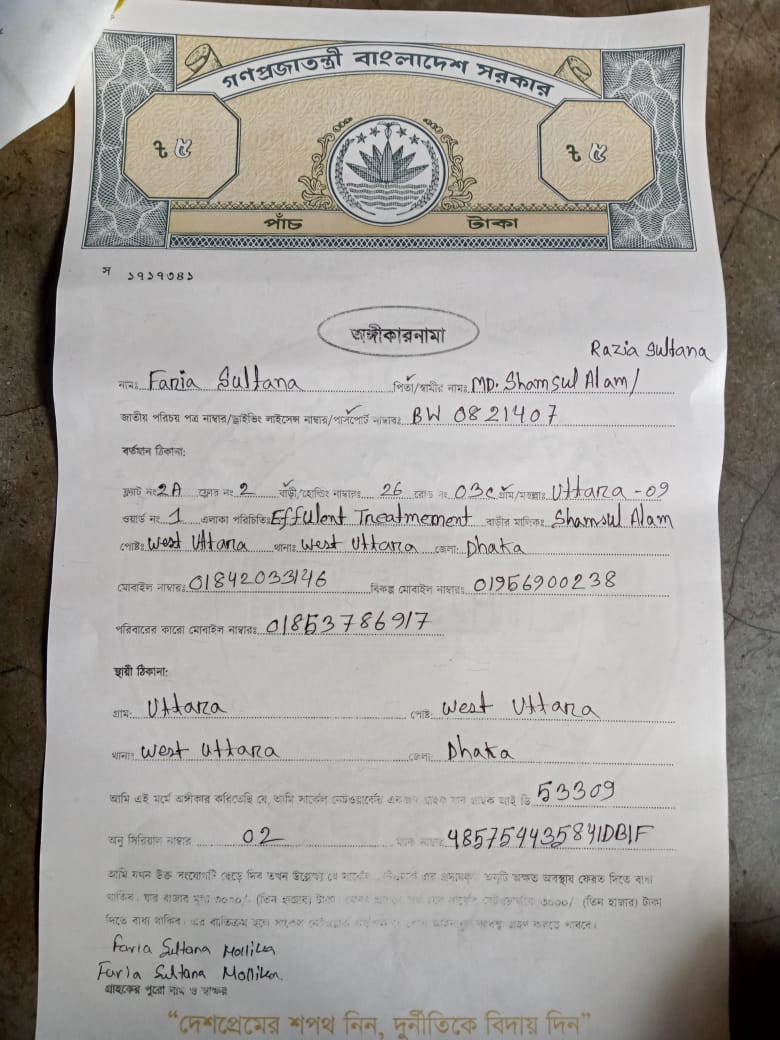 গণপ্রজাতন্ত্রী বাংলাদেশ সরকার
৳ ৫
৳ ৫
পাঁচ টাকা
স ১৭১৭৩৪১
অঙ্গীকারনামা
Razia Sultana
নামঃ Faria Sultana পিতা/স্বামীর নামঃ MD. Shamsul Alam/
জাতীয় পরিচয় পত্র নাম্বার/ড্রাইভিং লাইসেন্স নাম্বার/পাসপোর্ট নাম্বারঃ BW 0821407
বর্তমান ঠিকানা:
ফ্ল্যাট নং 2A ফ্লোর নং 2 বাড়ী/হোল্ডিং নাম্বারঃ 26 রোড নং 03C গ্রাম/মহল্লাঃ Uttara - 09
ওয়ার্ড নং 1 এলাকা পরিচিতিঃ Effulent Treatmement বাড়ীর মালিকঃ Shamsul Alam
পোষ্টঃ West Uttara থানাঃ West Uttara জেলা: Dhaka
মোবাইল নাম্বারঃ 01842033146 বিকল্প মোবাইল নাম্বারঃ 01956900238
পরিবারের কারো মোবাইল নাম্বারঃ 01853786917
স্থায়ী ঠিকানা:
গ্রাম: Uttara পোষ্ট: West Uttara
থানাঃ West Uttara জেলা: Dhaka
আমি এই মর্মে অঙ্গীকার করিতেছি যে, আমি সার্কেল নেটওয়ার্কের একজন গ্রাহক যার গ্রাহক আই ডি 53309
অনু সিরিয়াল নাম্বার 02 ম্যাক নাম্বার 485754435841DB1F
আমি যখন উক্ত সংযোগটি ছেড়ে দিব তখন উল্লেখ্য যে সার্কেল এর প্রদানকৃত অনুটি অক্ষত অবস্থায় ফেরত দিতে বাধ্য
থাকিব। যার বাজার মূল্য ৩০০০/- (তিন হাজার) টাকা ৩০০০/- (তিন হাজার) টাকা
দিতে বাধ্য থাকিব। এর ব্যতিক্রম হলে সার্কেল নেটওয়ার্ক গ্রহণ করতে পারবে।
Faria Sultana Mollika
Faria Sultana Mollika
গ্রাহকের পুরো নাম ও স্বাক্ষর
“দেশপ্রেমের শপথ নিন, দুর্নীতিকে বিদায় দিন”